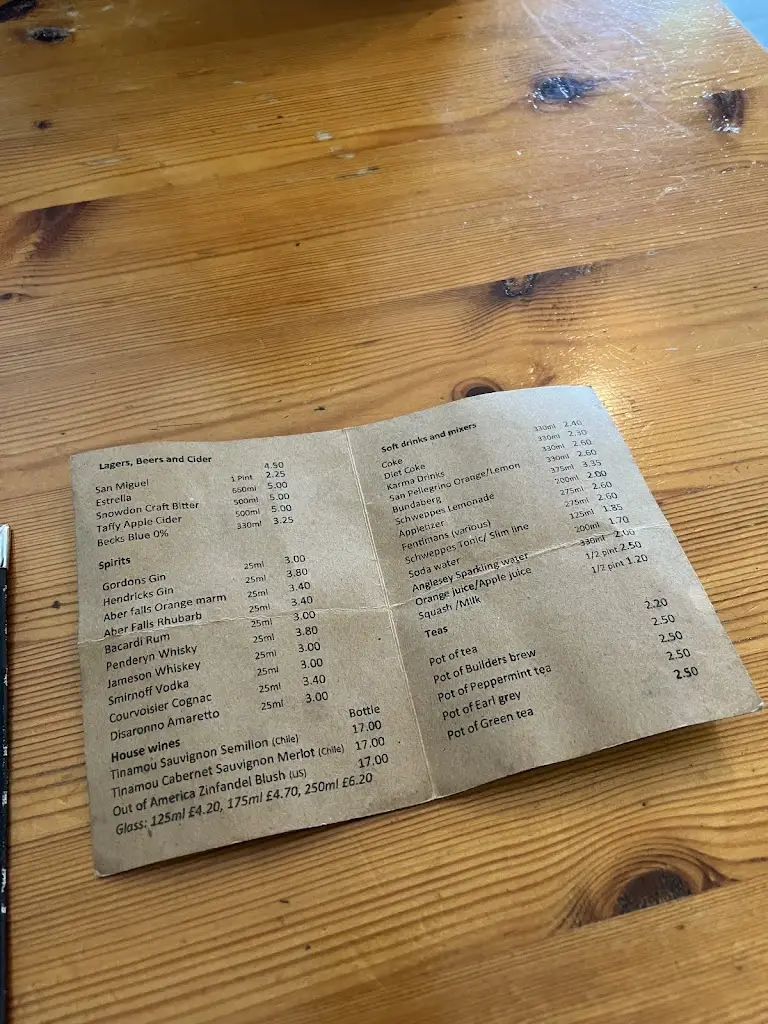 Lagers, Beers and Cider
4.50
San Miguel 1 Pint 2.25
Estrella 660ml 5.00
Snowdon Craft Bitter 500ml 5.00
Taffy Apple Cider 500ml 5.00
Becks Blue 0% 330ml 3.25
Spirits
Gordons Gin 25ml 3.00
Hendricks Gin 25ml 3.80
Aber falls Orange marm 25ml 3.40
Aber Falls Rhubarb 25ml 3.40
Bacardi Rum 25ml 3.00
Penderyn Whisky 25ml 3.80
Jameson Whiskey 25ml 3.00
Smirnoff Vodka 25ml 3.00
Courvoisier Cognac 25ml 3.40
Disaronno Amaretto 25ml 3.00
House wines Bottle
Tinamou Sauvignon Semillon (Chile) 17.00
Tinamou Cabernet Sauvignon Merlot (Chile) 17.00
Out of America Zinfandel Blush (US) 17.00
Glass: 125ml £4.20, 175ml £4.70, 250ml £6.20
Soft drinks and mixers
Coke 330ml 2.40
Diet Coke 330ml 2.30
Karma Drinks 330ml 2.60
San Pellegrino Orange/Lemon 330ml 2.60
Bundaberg 375ml 3.35
Schweppes Lemonade 200ml 2.00
Appletizer 275ml 2.60
Fentimans (various) 275ml 2.60
Schweppes Tonic/ Slim line 125ml 1.85
Soda water 200ml 1.70
Anglesey Sparkling water 330ml 2.00
Orange juice/Apple juice 1/2 pint 2.50
Squash /Milk 1/2 pint 1.20
Teas
Pot of tea 2.20
Pot of Builders brew 2.50
Pot of Peppermint tea 2.50
Pot of Earl grey 2.50
Pot of Green tea 2.50